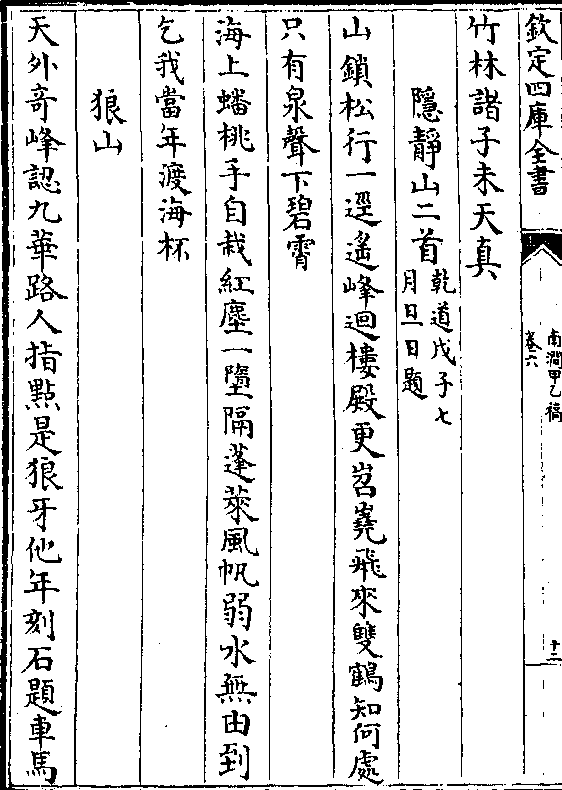 欽定四庫全書
南澗甲乙稿
卷六
十二
竹林諸子未天真
隱靜山二首
乾道戊子七
月旦日題
山鎖松行一逕遙峰迴樓殿更岧嶤飛來雙鶴知何處
只有泉聲下碧霄
海上蟠桃手自栽紅塵一墮隔蓬萊風帆弱水無由到
乞我當年渡海杯
狼山
天外奇峰認九華路人指點是狼牙他年刻石題車馬